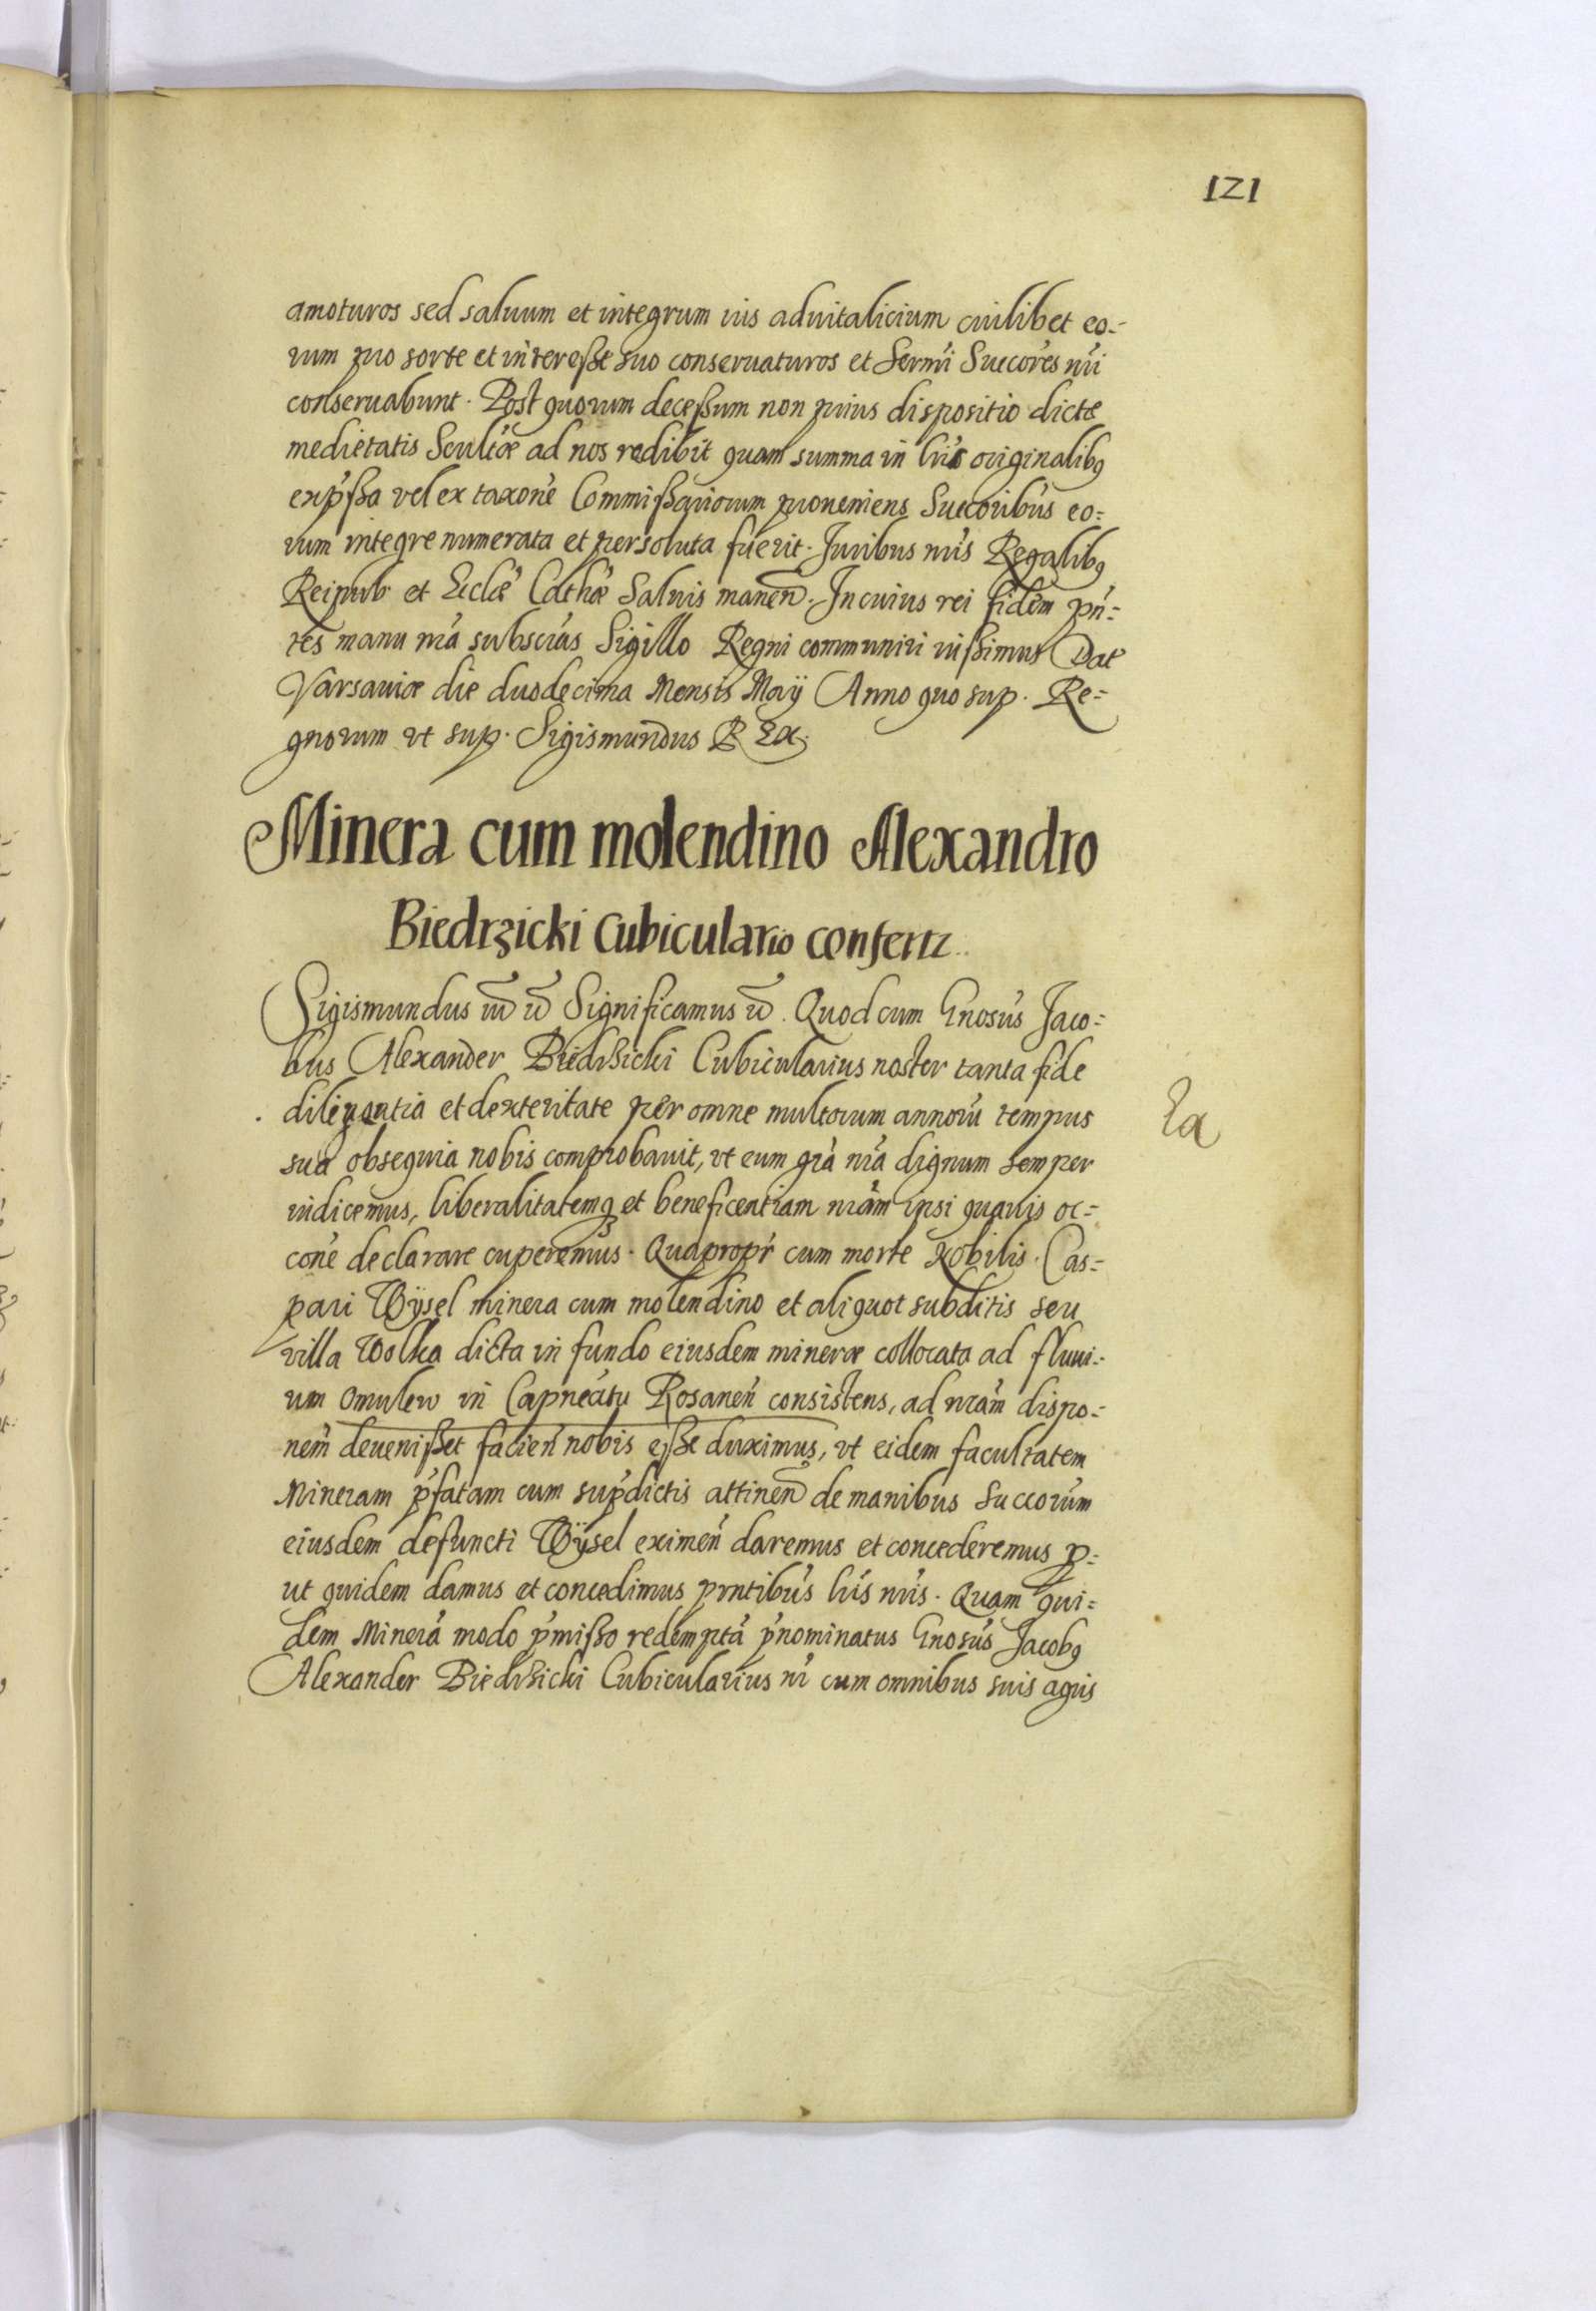 121
amoturos sed saluum et integrum ius aduitalicium cuilibet eo-
rum pro sorte et interesse suo conseruaturos et Sermi Succores nri
conseruabunt. Post quorum decessum non prius dispositio dictæ
medietatis Scultæ ad nos redibit quam summa in lris originalibq
expssa vel ex taxone Commissariorum proueniens Succoribus eo-
rum integre numerata et persoluta fuerit. Juribus nris Regalibq
Reipub et Ecclæ Cathæ Saluis manen. In cuius rei fidem pn-
tes manu nra subscras Sigillo Regni communiri iussimus Dat
Varsauiæ die duodecima Mensis Maÿ Anno quo sup. Re-
gnorum vt sup. Sigismundus REX.
Minera cum molendino Alexandro
Biedrzicki Cubiculario confertr
Sigismundus Significamus Quod cum Gnosus Jaco-
bus Alexander Biedrzicki Cubicularius noster tanta fide
diligentia et dexteritate per omne multorum annoru tempus
sua obsequia nobis comprobauit, vt eum gra nra dignum semper
iudicemus, liberalitatemq et beneficentiam nram ipsi quauis oc-
cone declarare cuperemus. Quapropr cum morte Nobilis Cas-
pari Wÿsel minera cum molendino et aliquot subditis seu
villa Wolka dicta in fundo eiusdem mineræ collocata ad fluui-
um Omulew in Capneatu Rosanen consistens, ad nram dispo-
nem deuenisset facien nobis esse duximus, vt eidem facultatem
Mineram pfatam cum supdictis attinen de manibus Succorum
eiusdem defuncti Wÿsel eximen daremus et concederemus p-
ut quidem damus et concedimus pntibus lris nris. Quam qui-
dem Minera modo pmisso redempta pnominatus Gnosus Jacobq
Alexander Biedrzicki Cubicularius nr cum omnibus suis agris